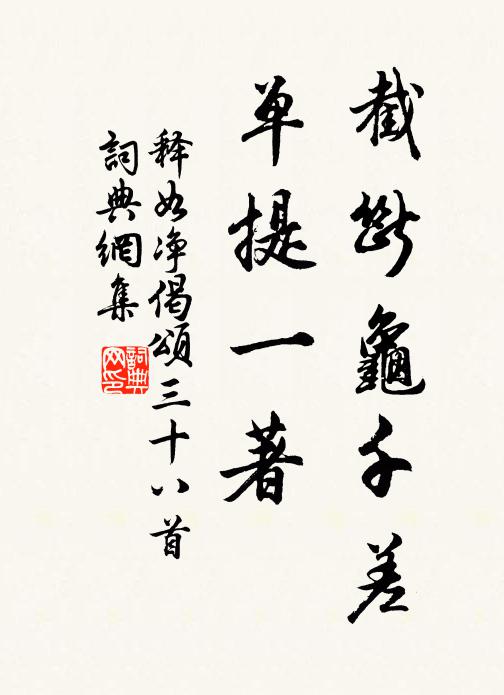 截斷龜千差
单提一著
释如净偈頌三十八首
詞典網集
詞典网印